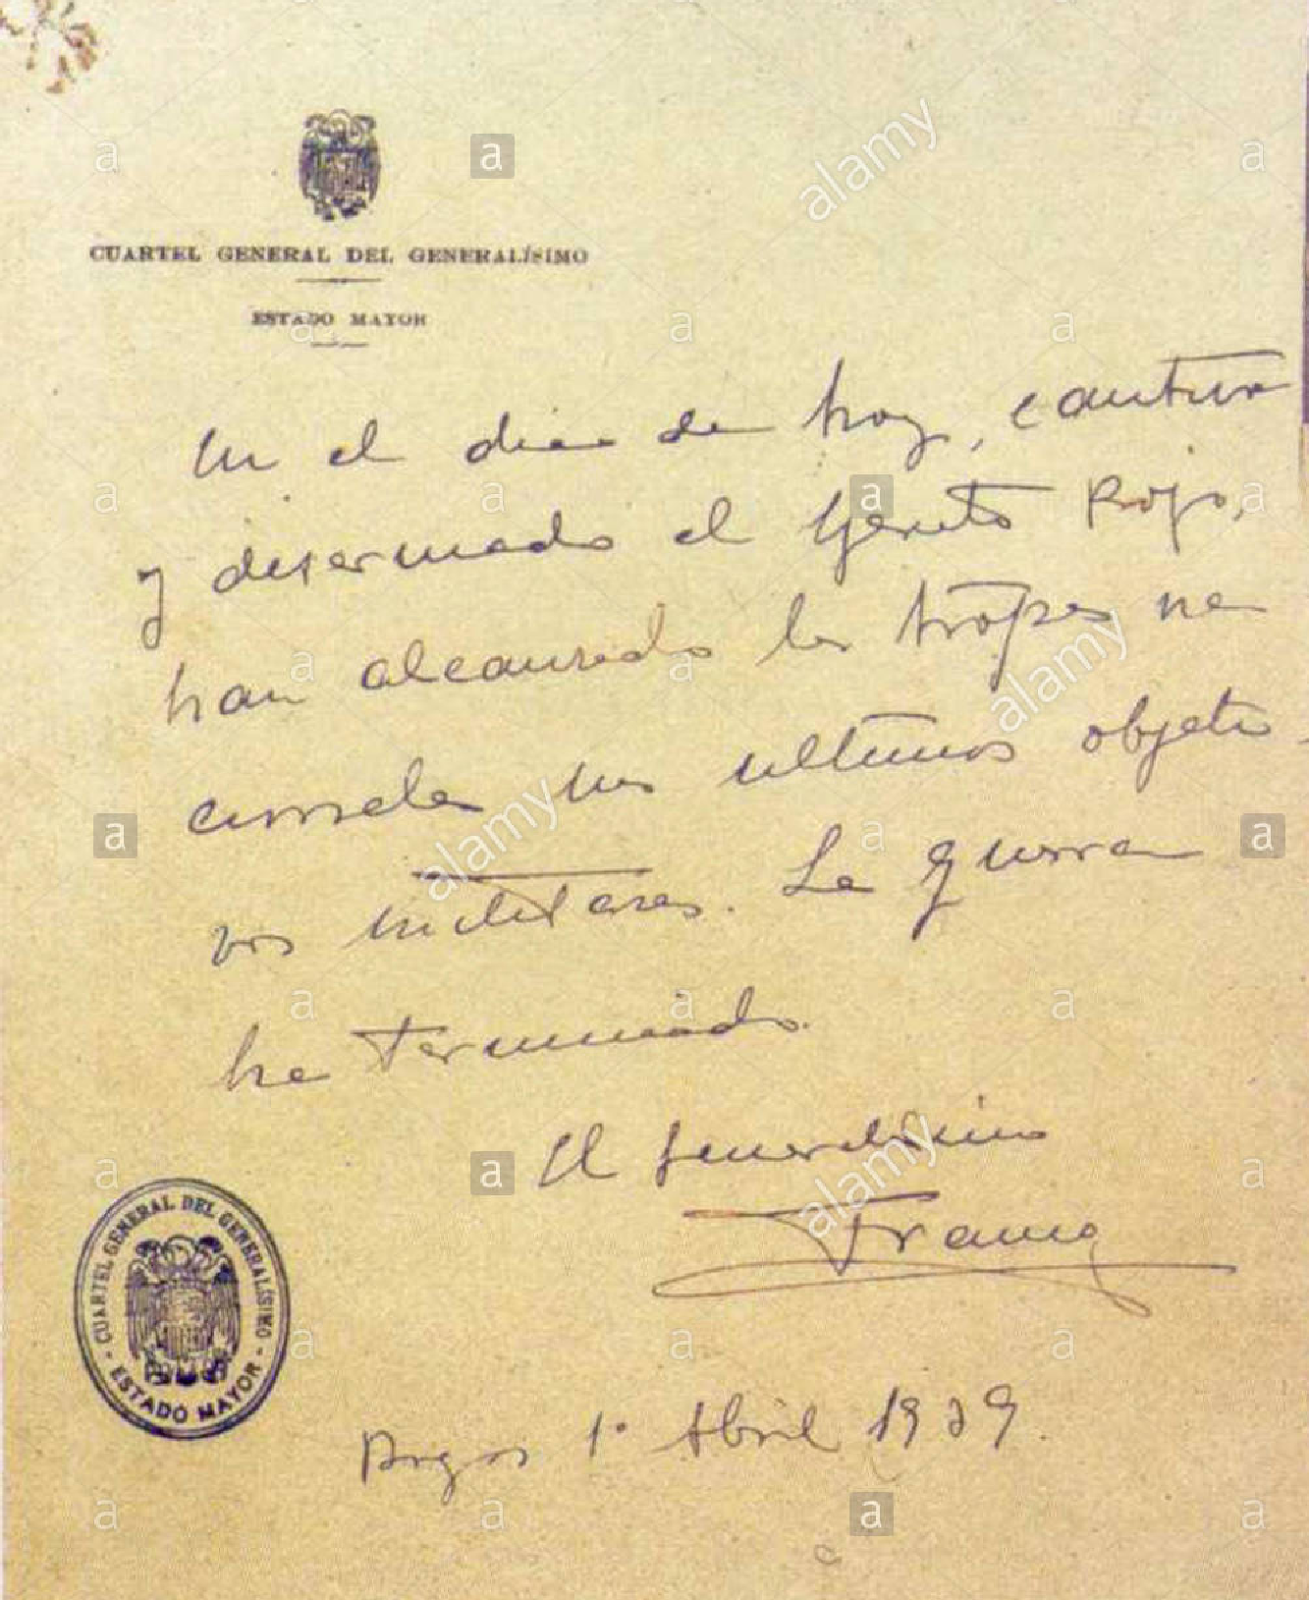 CUARTEL GENERAL DEL GENERALÍSIMO
ESTADO MAYOR
En el dia de hoy, cautivo
y desarmado el Ejercito Rojo,
han alcanzado las tropas na
cionales sus ultimos objeti-
vos militares. La guerra
ha terminado.
El Generalisimo
Franco
CUARTEL GENERAL DEL GENERALÍSIMO
- ESTADO MAYOR -
Burgos 1º Abril 1939.
alamy
alamy
alamy
alamy